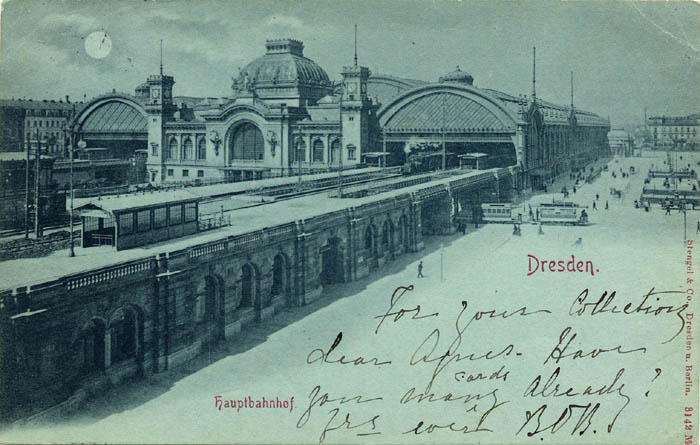 Dresden.
Hauptbahnhof.
For your Collection
dear Agnes. Have
you many cards Already?
Yrs ever B.D.B.
Stengel & Co., Dresden u. Berlin. 3142